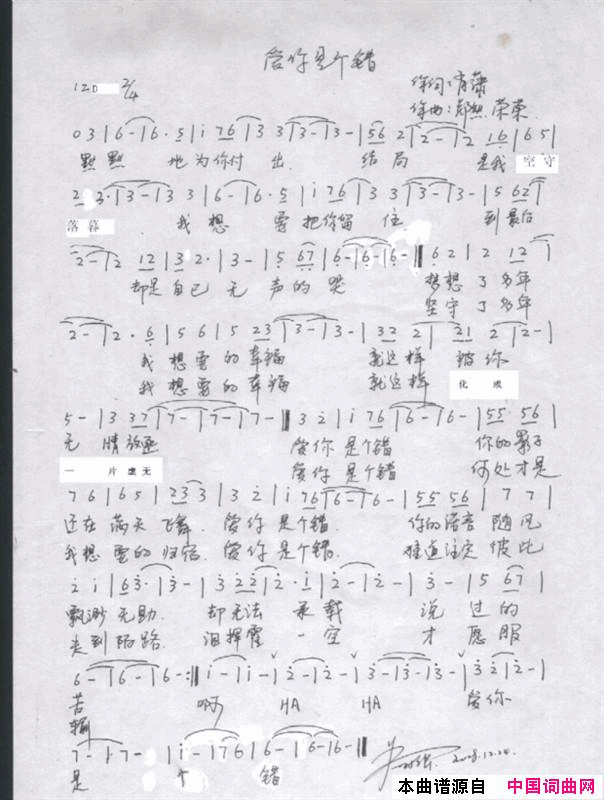 爱你是个错
120 2/4
作词:肖潇
作曲:郑焦 荣荣
0 3 | 6 - | 6 · 5 | i 7 6 | 3 3 | 3 - | 3 - | 5 6 2 | 2 - | 2 1 6 | 6 5 |
默默 地为你付 出 结局 是我 空守
2 · 3 | 3 - | 3 - | 3 3 | 6 - | 6 · 5 | i 7 6 | 3 3 | 3 - | 3 - | 5 6 2 |
落幕 我想 要把你留 住 到最后
2 - | 2 1 2 | 3 2 · | 3 - | 5 6 7 | 6 - | 6 - | 6 - ‖ 6 2 | 2 1 2 |
却是自己 无 声的哭 梦想了多年
坚守了多年
2 - | 2 · 6 | 5 6 | 5 2 3 | 3 - | 3 - | 3 2 2 | 2 2 1 | 2 | 2 - |
我 想要的幸福 就这样 被你
我 想要的幸福 就这样 化成
5 - | 3 3 7 | 7 - | 7 - | 7 - ‖ 3 2 | i 7 6 | 6 - | 6 - | 5 5 5 6 |
无 情放逐 爱你 是个错 你的影子
一 片虚无 爱你 是个错 何处才是
7 6 | 6 5 | 2 3 3 | 3 2 | i 7 6 | 6 - | 6 - | 5 5 5 6 | 7 7 |
还在 满天 飞舞 爱你 是个错 你的语音 随风
我想 要的 归宿 爱你 是个错 难道注定 彼此
2 i | 6 3 · | 3 - | 3 2 2 | 2 · i | 2 - | 2 - | 3 - | 5 6 7 |
飘渺 无助 却无法 承载 说 过的
走到陌路 泪挥霍 一空 才 愿服
6 - | 6 - | 6 - :‖ i - | i - | 2 - | 2 - | 3 - | 3 - | 3 - | 3 2 | 2 - |
苦 啊 HA HA 爱你
输
7 - | 7 - | i - | 7 6 | 6 - | 6 - | 6 - ‖
是 个 错
2008.12.20.
本曲谱源自 中国词曲网